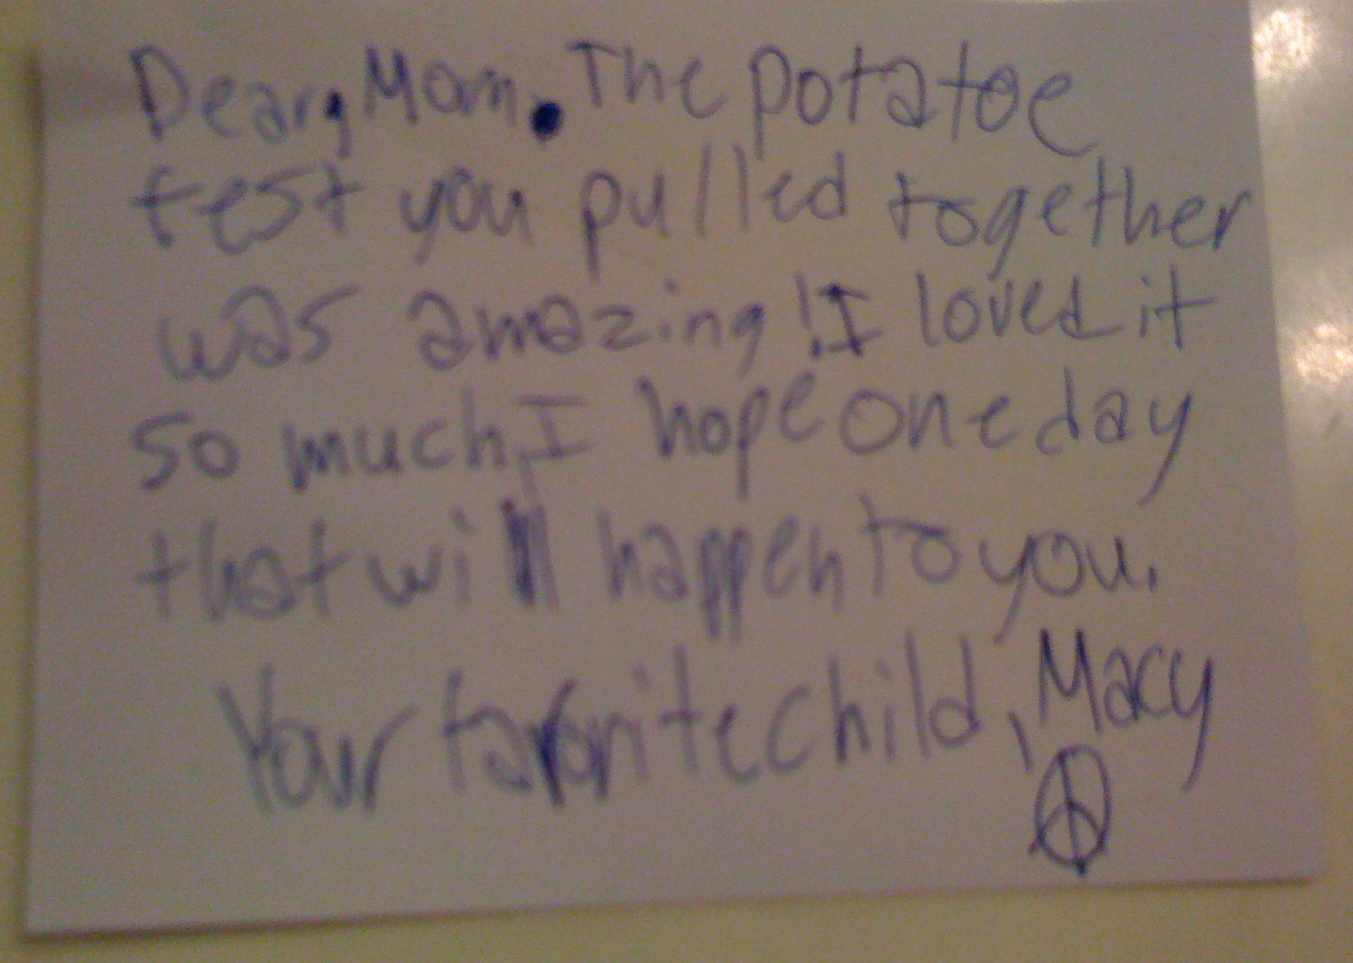 Dear, Mom. The potatoe
fest you pulled together
was amazing! I loved it
so much, I hope one day
that will happen to you.
Your favorite child, Macy